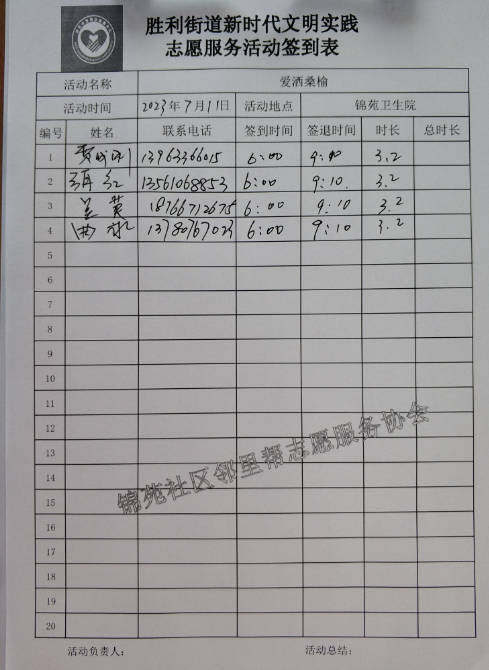 胜利街道新时代文明实践
志愿服务活动签到表
活动名称 爱洒桑榆
活动时间 2023年7月11日 活动地点 锦苑卫生院
编号 姓名 联系电话 签到时间 签退时间 时长 总时长
1 13963366015 6:00 9:10 3.2
2 红 13561068853 6:00 9:10 3.2
3 兰英 18766712675 6:00 9:10 3.2
4 13780767023 6:00 9:10 3.2
5
6
7
8
9
10
11
12
13
14
15
16
17
18
19
20
锦苑社区邻里帮志愿服务协会
活动负责人： 活动总结：